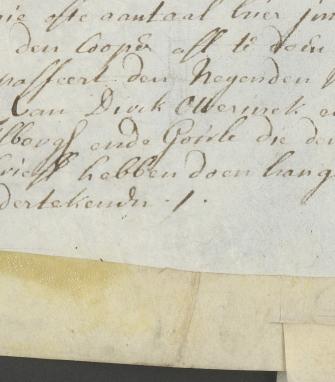 nie ofte aantaal hier
den Cooper aff te doen
passeert den Negenden
Van Dirck Otterwek
lborgh ende Goirle die
brieff hebben doen hang
dertekenen /.